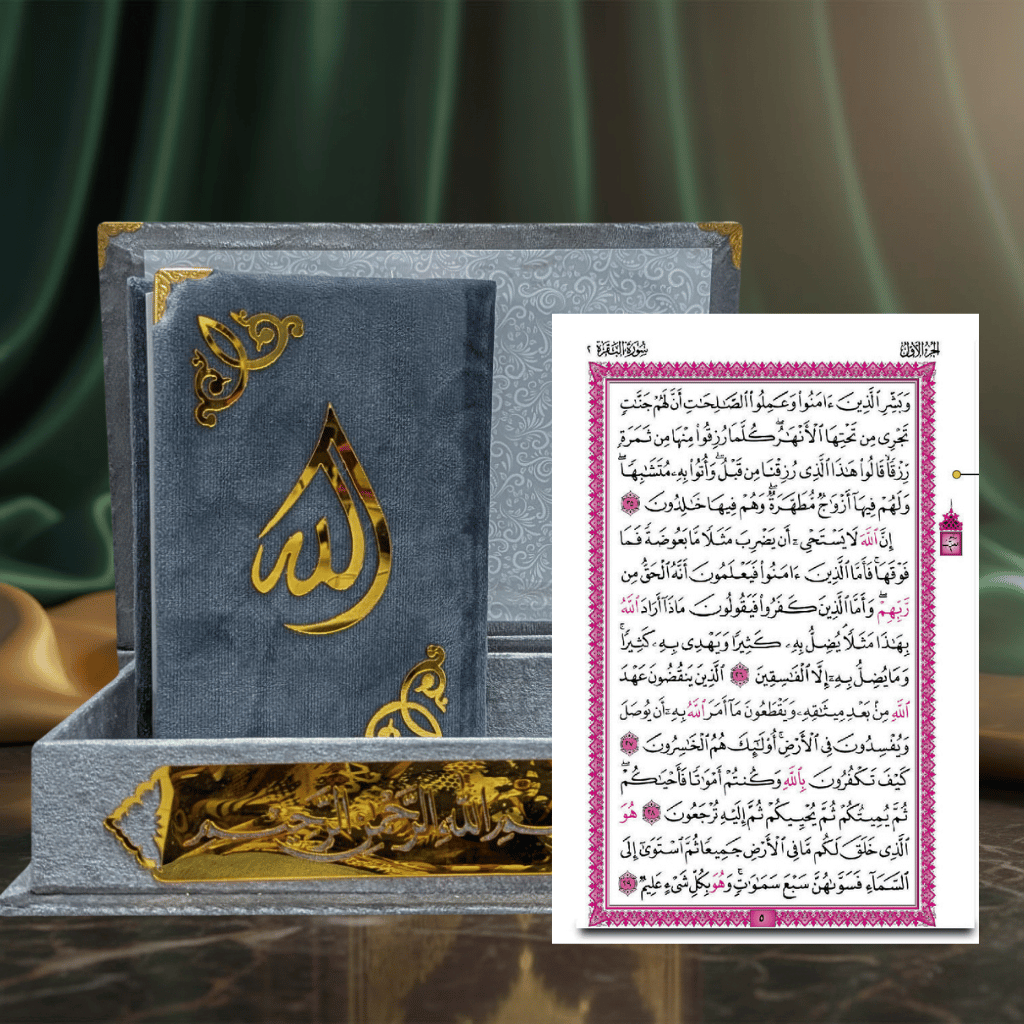 الله
بسم الله الرحمن الرحيم
سُورَةُ البَقَرَة ٢
الجُزءُ الأوَّلُ
وَبَشِّرِ ٱلَّذِينَ ءَامَنُوا۟ وَعَمِلُوا۟ ٱلصَّـٰلِحَـٰتِ أَنَّ لَهُمْ جَنَّـٰتٍ
تَجْرِى مِن تَحْتِهَا ٱلْأَنْهَـٰرُ ۖ كُلَّمَا رُزِقُوا۟ مِنْهَا مِن ثَمَرَةٍ
رِّزْقًا ۙ قَالُوا۟ هَـٰذَا ٱلَّذِى رُزِقْنَا مِن قَبْلُ ۖ وَأُتُوا۟ بِهِۦ مُتَشَـٰبِهًا ۖ
وَلَهُمْ فِيهَآ أَزْوَٰجٌ مُّطَهَّرَةٌ ۖ وَهُمْ فِيهَا خَـٰلِدُونَ ٢٥
إِنَّ ٱللَّهَ لَا يَسْتَحْىِۦٓ أَن يَضْرِبَ مَثَلًا مَّا بَعُوضَةً فَمَا
فَوْقَهَا ۚ فَأَمَّا ٱلَّذِينَ ءَامَنُوا۟ فَيَعْلَمُونَ أَنَّهُ ٱلْحَقُّ مِن
رَّبِّهِمْ ۖ وَأَمَّا ٱلَّذِينَ كَفَرُوا۟ فَيَقُولُونَ مَاذَآ أَرَادَ ٱللَّهُ
بِهَـٰذَا مَثَلًا ۘ يُضِلُّ بِهِۦ كَثِيرًا وَيَهْدِى بِهِۦ كَثِيرًا ۚ
وَمَا يُضِلُّ بِهِۦٓ إِلَّا ٱلْفَـٰسِقِينَ ٢٦ ٱلَّذِينَ يَنقُضُونَ عَهْدَ
ٱللَّهِ مِنۢ بَعْدِ مِيثَـٰقِهِۦ وَيَقْطَعُونَ مَآ أَمَرَ ٱللَّهُ بِهِۦٓ أَن يُوصَلَ
وَيُفْسِدُونَ فِى ٱلْأَرْضِ ۚ أُو۟لَـٰٓئِكَ هُمُ ٱلْخَـٰسِرُونَ ٢٧
كَيْفَ تَكْفُرُونَ بِٱللَّهِ وَكُنتُمْ أَمْوَٰتًا فَأَحْيَـٰكُمْ ۖ
ثُمَّ يُمِيتُكُمْ ثُمَّ يُحْيِيكُمْ ثُمَّ إِلَيْهِ تُرْجَعُونَ ٢٨ هُوَ
ٱلَّذِى خَلَقَ لَكُم مَّا فِى ٱلْأَرْضِ جَمِيعًا ثُمَّ ٱسْتَوَىٰٓ إِلَى
ٱلسَّمَآءِ فَسَوَّىٰهُنَّ سَبْعَ سَمَـٰوَٰتٍ ۚ وَهُوَ بِكُلِّ شَىْءٍ عَلِيمٌ ٢٩
٥